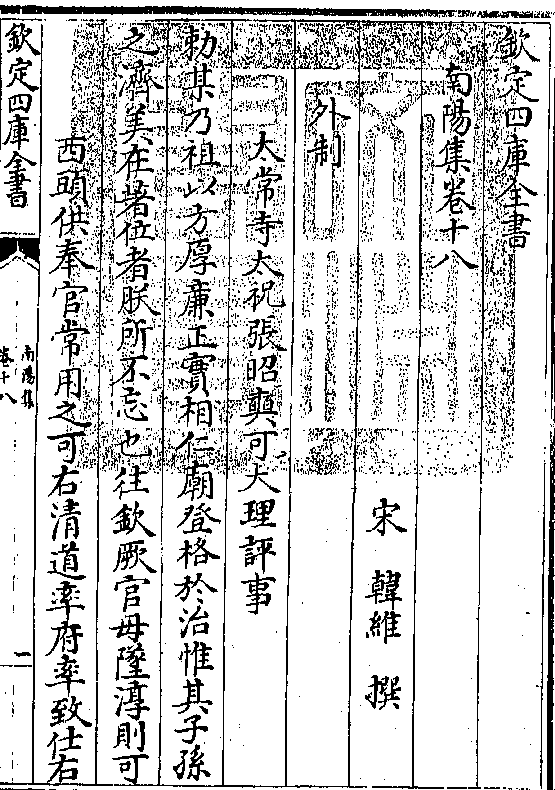 欽定四庫全書
南陽集卷十八
宋 韓維 撰
外制
太常寺太祝張昭㒞可大理評事
勅某乃祖以方厚廉正實相仁廟登格於治惟其子孫
之濟美在著位者朕所不忘也往欽厥官毋墜淳則可
西頭供奉官常用之可右清道率府率致仕右
欽定四庫全書
南陽集
卷十八
一